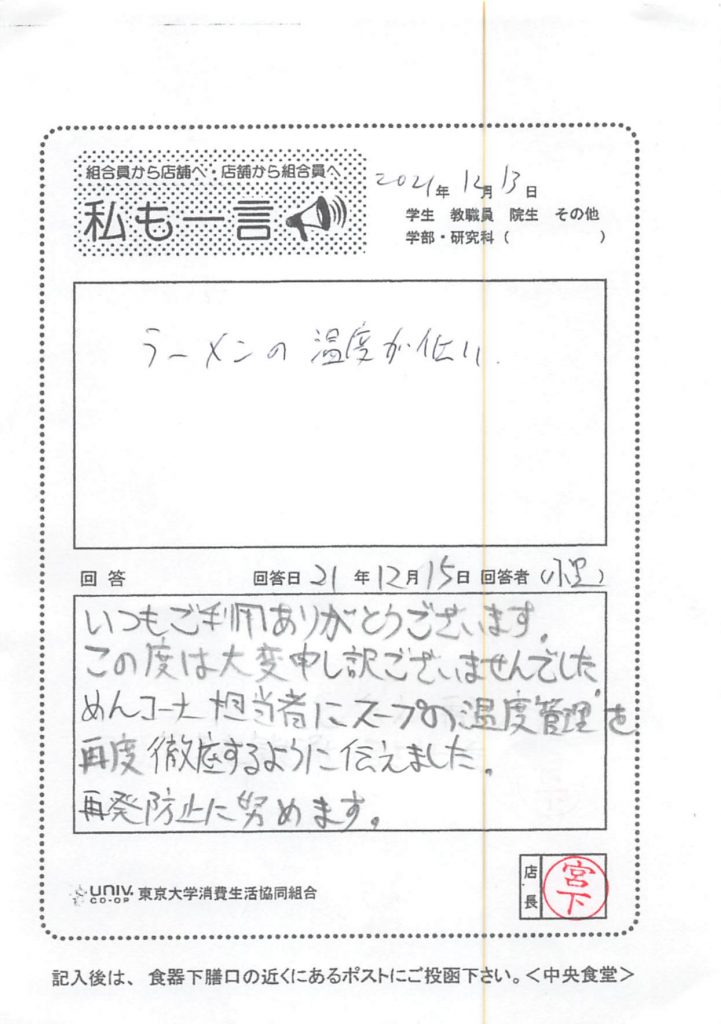 組合員から店舗へ・店舗から組合員へ
私も一言
2021年 12月 13日
学生 教職員 院生 その他
学部・研究科( )
ラーメンの温度が低い.
回答 回答日 21年12月15日 回答者( )
いつもご利用ありがとうございます。
この度は大変申し訳ございませんでした
めんコーナー担当者にスープの"温度管理"を
再度徹底するように伝えました。
再発防止に努めます。
UNIV. CO-OP 東京大学消費生活協同組合
店長 宮下
記入後は、食器下膳口の近くにあるポストにご投函下さい。<中央食堂>